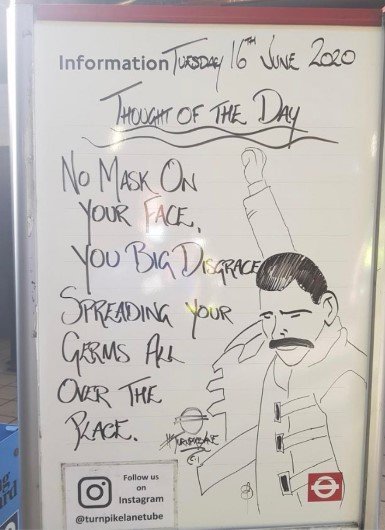 Information TUESDAY 16TH JUNE 2020
THOUGHT OF THE DAY
NO MASK ON
YOUR FACE,
YOU BIG DISGRACE
SPREADING YOUR
GERMS ALL
OVER THE
PLACE.
#TURNPIKELANE
Follow us
on
Instagram
@turnpikelanetube